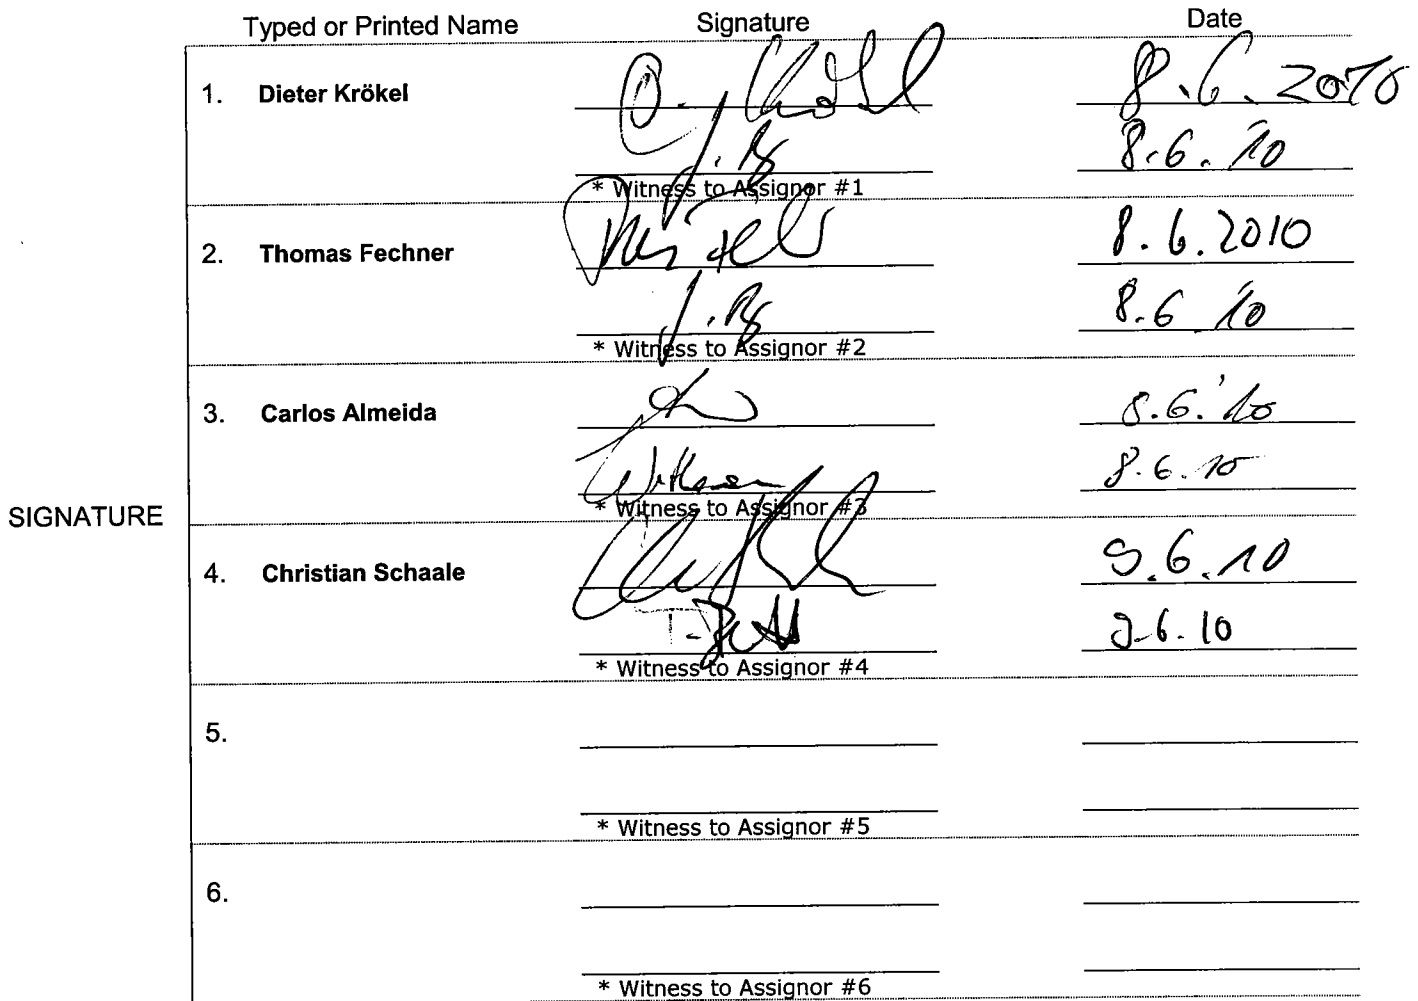 Typed or Printed Name Signature Date
1. Dieter Krökel 8.6.2010
8.6.10
* Witness to Assignor #1
2. Thomas Fechner 8.6.2010
8.6 10
* Witness to Assignor #2
3. Carlos Almeida 8.6.'10
8.6.10
* Witness to Assignor #3
SIGNATURE
4. Christian Schaale 9.6.10
9.6.10
* Witness to Assignor #4
5.
* Witness to Assignor #5
6.
* Witness to Assignor #6